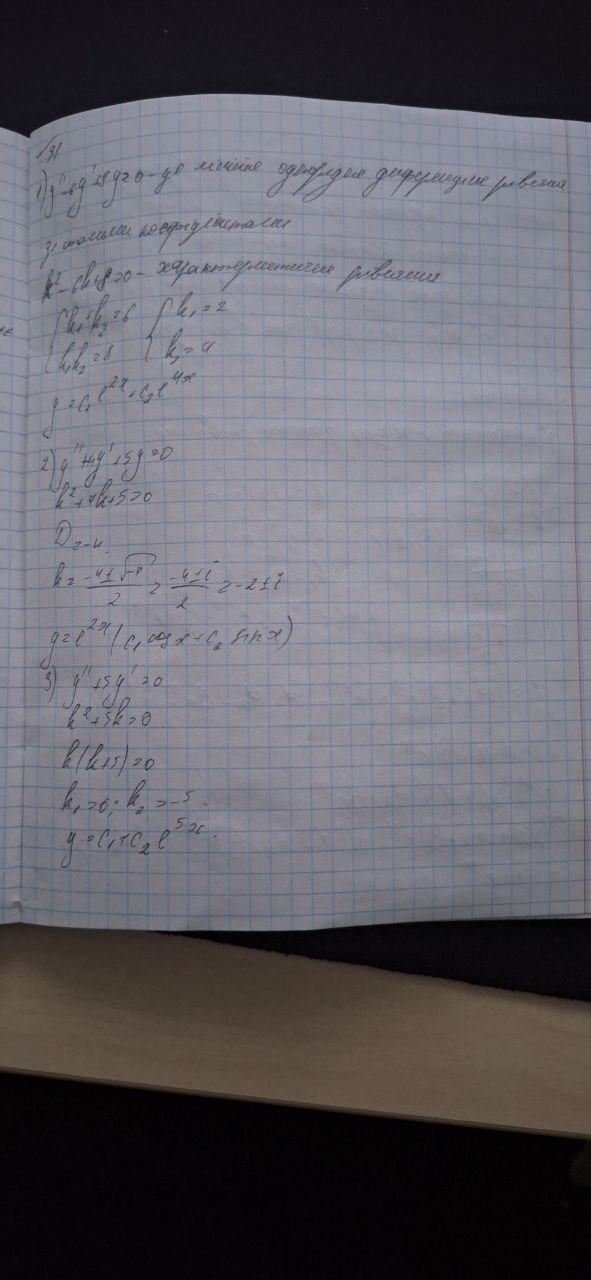 №91
1) y'' - 6y' + 8y = 0 - це лінійне однорідне диференціальне рівняння
зі сталими коефіцієнтами
k² - 6k + 8 = 0 - характеристичне рівняння
{ k₁ + k₂ = 6 { k₁ = 2
{ k₁k₂ = 8 { k₂ = 4
y = C₁e^{2x} + C₂e^{4x}
2) y'' + 4y' + 5y = 0
k² + 4k + 5 = 0
D = -4.
k = (-4 ± √-4)/2 = (-4 ± i)/2 = -2 ± i
y = e^{2x}(C₁ cos x + C₂ sin x)
3) y'' + 5y' = 0
k² + 5k = 0
k(k+5) = 0
k₁ = 0; k₂ = -5.
y = C₁ + C₂e^{5x}.